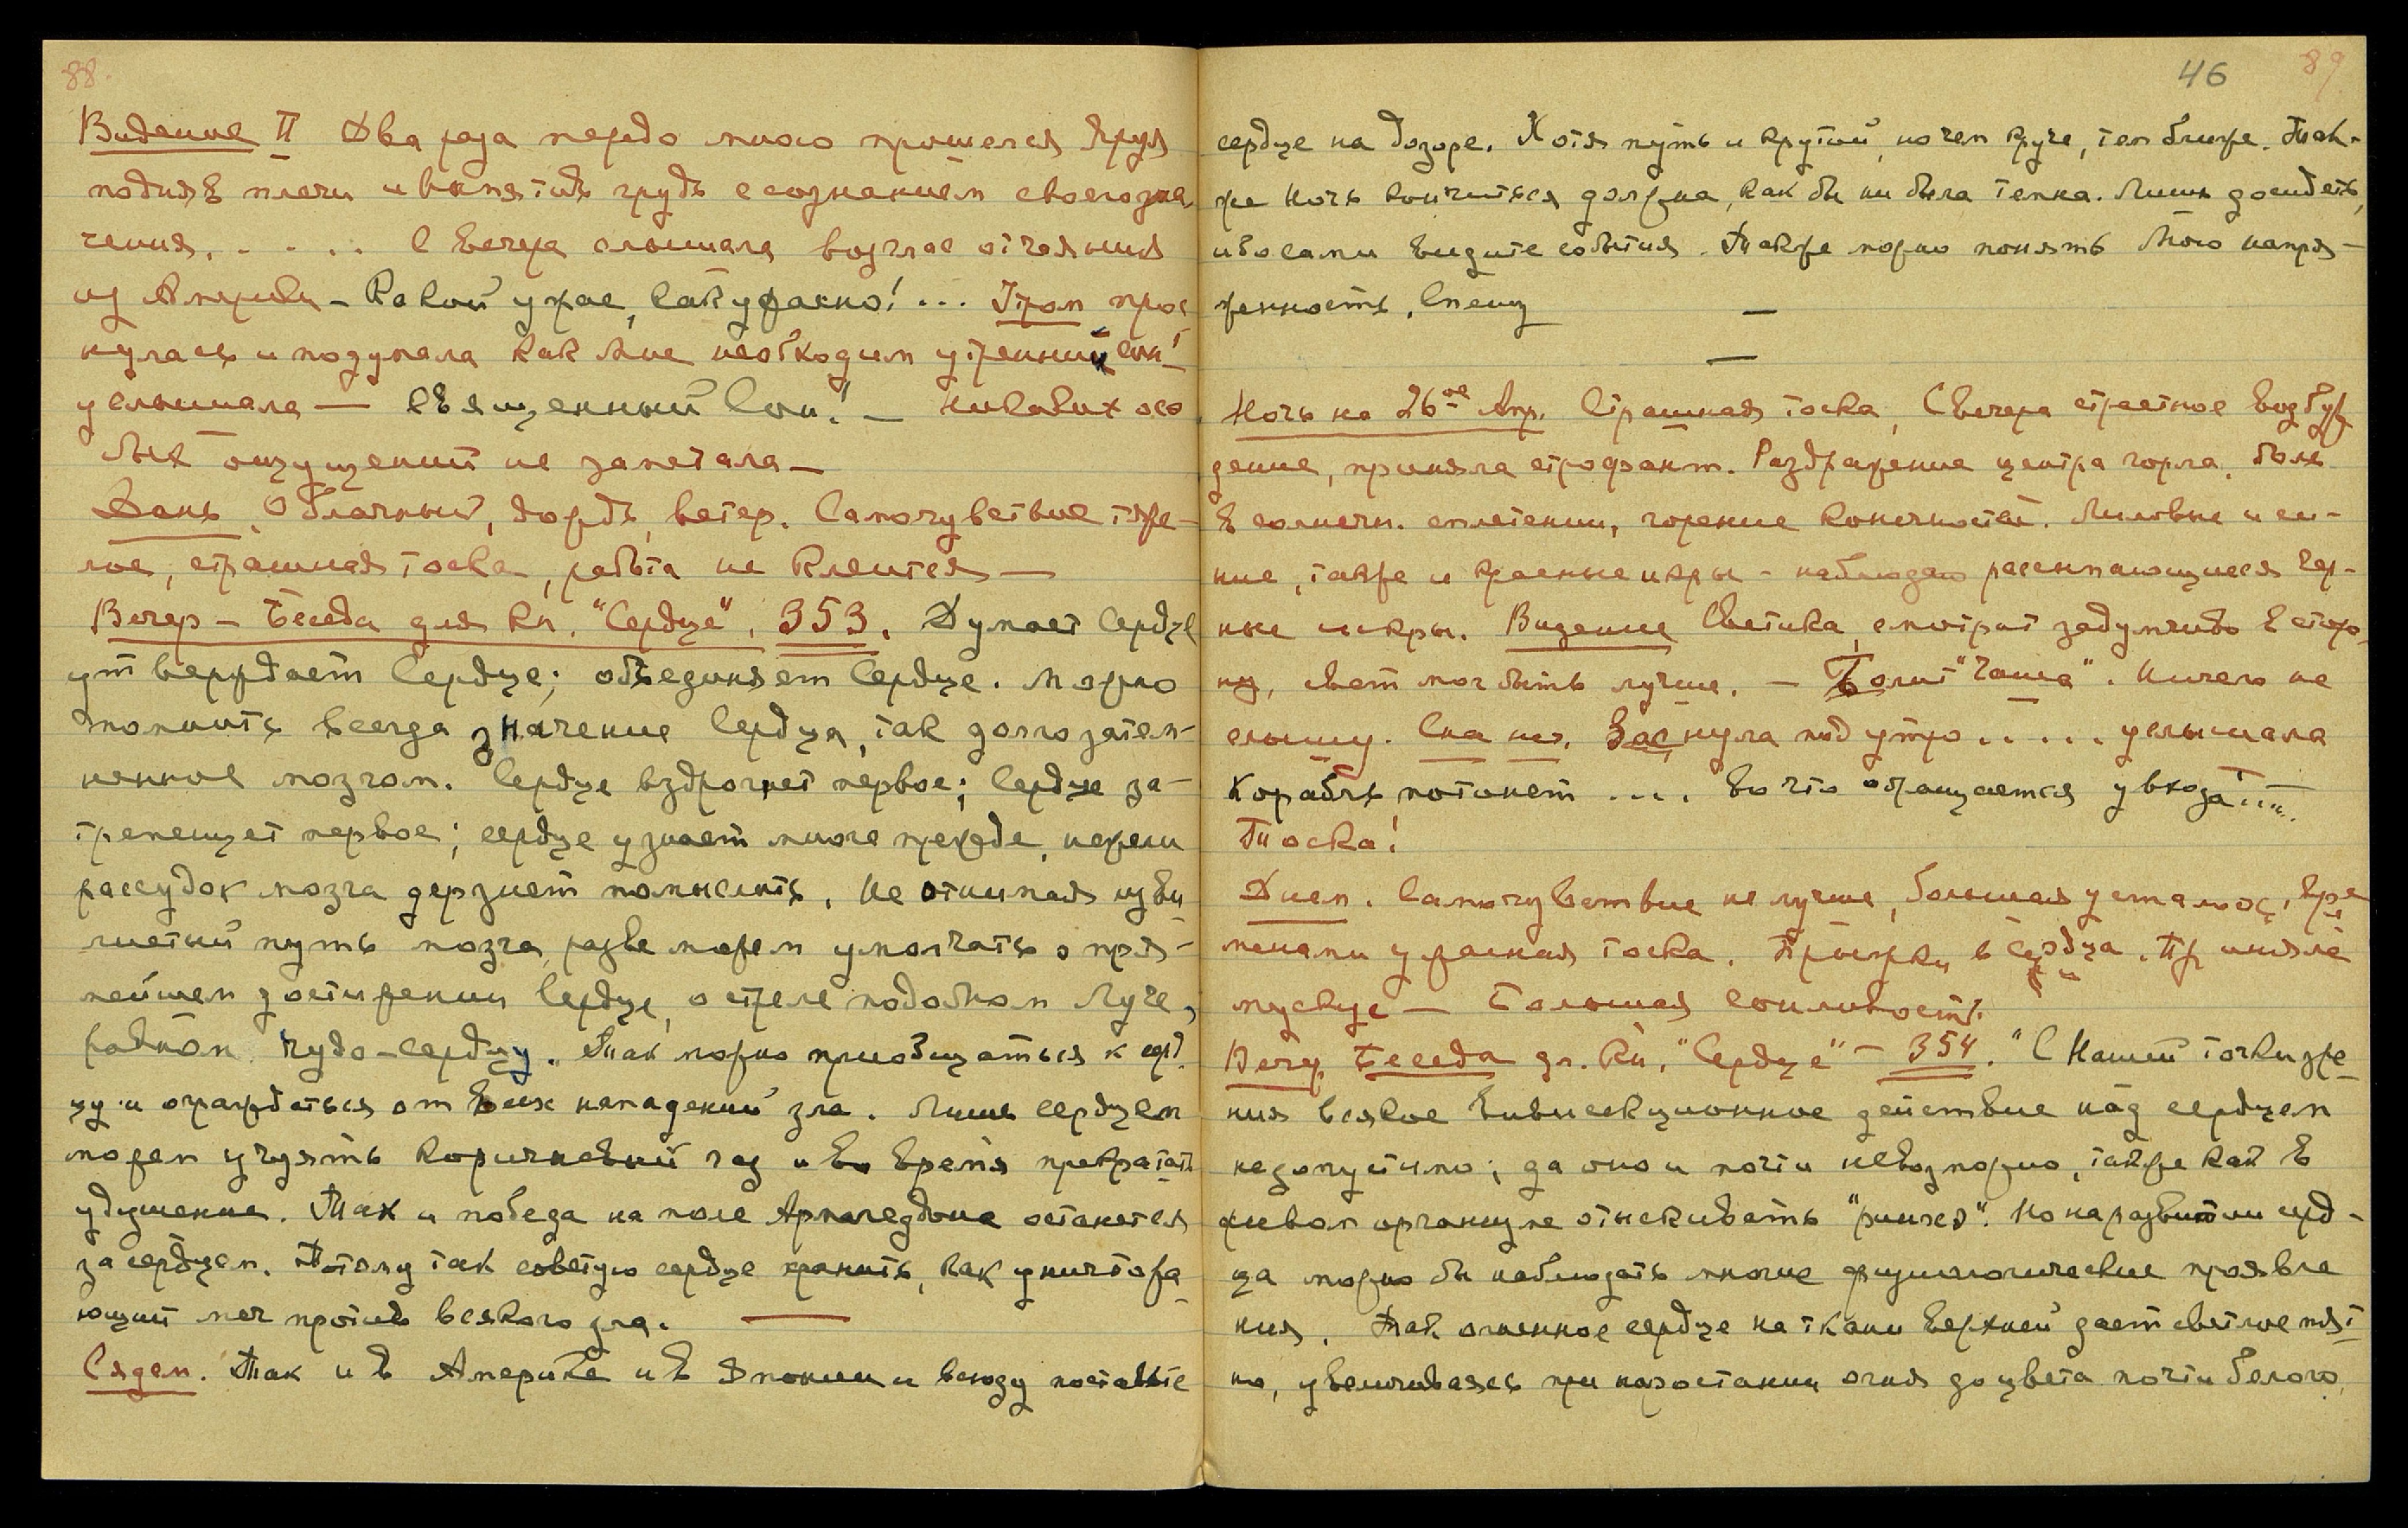 88.
Видение II Два раза передо мною прошелся Яруя
подняв плечи и выпятив грудь с сознанием своего зна-
чения. . . . . С вечера слышала возглас отчаяния
из Америки – Какой ужас, как ужасно! ... Утром прос
нулась и подумала как мне необходим утренний сон!
услышала — Священный Сон! – Никаких осо
бых ощущений не заметала –
День. Облачный, дождь, ветер. Самочувствие тяже-
лое, страшная тоска, работа не клеится —
Вечер – Беседа для кн. "Сердце". 353. Думает Сердце
утверждает Сердце; объединяет Сердце. Можно
помнить всегда значение Сердца, так долго затем-
ненное мозгом. Сердце вздрогнет первое; Сердце за-
трепещет первое; сердце узнает многое прежде, нежели
рассудок мозга дерзнет помыслить. Не отнимая изви
листый путь мозга, разве можем умолчать о пря-
мейшем достижении Сердце, о стреле подобном Луче,
равном чудо-сердцу. Так можно приобщаться к серд
цу и ограждаться от всех нападений зла. Лишь сердцем
можем учуять коричневый газ и во время прекратать
удушение. Так и победа на поле Армагеддона останется
за сердцем. Потому так советую сердце хранить, как уничтожа
ющий меч против всякого зла. —
Сядем. Так и в Америке и в Японии и всюду поставьте
46 89
сердце на дозоре. Хотя путь и крутой, но чем круче, тем ближе. Так-
же Ночь кончиться должна, как бы ни была темна. Лишь досидеть,
и вы сами видите события. Также можно понять Мою напря-
женность. Спешу —
—
Ночь на 26ое Апр. Страшная тоска, С вечера страстное возбуж
дение, приняла строфант. Раздражение центра горла, боль
в солнечн. сплетении, горение конечностей. Лиловые и си-
ние, также и красные искры – наблюдаю рассыпающиеся чер-
ные искры. Видение Светика, смотрит задумчиво в сторо
ну, свет мог быть лучше. – Болит "Чаша". Ничего не
слышу. Сна нет. Заснула под утро . . . . . услышала
Корабль потонет .... Во что обращается у входа!....
Тоска!
Днем. Самочувствие не лучше, большая усталос, вре
менами ужасная тоска. Прыжки в сердца. Приняла
мускус — Большая сонливость.
Вечер. Беседа дл. кн. "Сердце" – 354. "С Нашей точки зре
ния всякое вивисекционное действие над сердцем
недопустимо; да оно и почти невозможно, также как в
живом организме отыскивать "рингсэ". Но на развитии серд-
ца можно бы наблюдать многие физиологические проявле
ния. Так огненное сердце на ткани верхней дает светлое пят
но, увеличиваясь при нарастании огня до цвета почти белого.